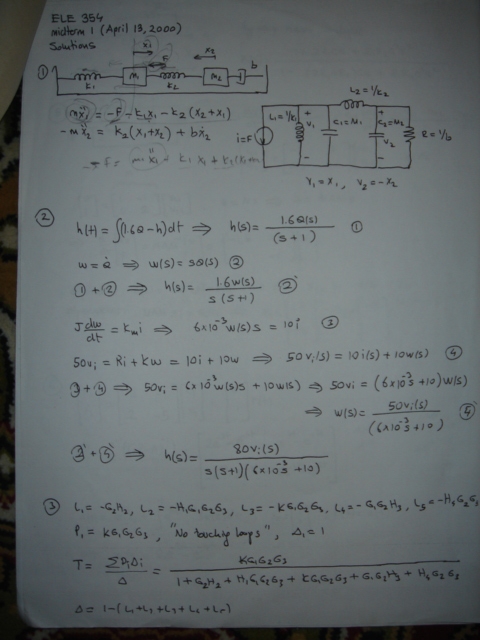 ELE 354
midterm 1 (April 13, 2000)
Solutions
① k1 m k2 m2 b
x1 F x2
mẍ1 = -F - k1x1 - k2(x2+x1)
-mẍ2 = k2(x1+x2) + bẋ2
i=F L1=1/k1 v1 C1=M1 L2=1/k2 C2=M2 v2 R=1/b
V1 = x1, V2 = -x2
② h(t) = ∫(1.6θ-h)dt ⇒ h(s) = 1.6θ(s) / (s+1) ①
w = θ̇ ⇒ w(s) = sθ(s) ②
① + ② ⇒ h(s) = 1.6w(s) / s(s+1) ②'
J dw/dt = Kmi ⇒ 6x10^-3 w(s)s = 10i ③
50vi = Ri + Kw = 10i + 10w ⇒ 50vi(s) = 10i(s) + 10w(s) ④
③ + ④ ⇒ 50vi = 6x10^-3 w(s)s + 10w(s) ⇒ 50vi = (6x10^-3 s + 10)w(s)
⇒ w(s) = 50vi(s) / (6x10^-3 s + 10) ④'
+ ④' ⇒ h(s) = 80vi(s) / s(s+1)(6x10^-3 s + 10)
③ L1 = -G2H2, L2 = -H1G1G2G3, L3 = -KG1G2G3, L4 = -G1G2H3, L5 = -H4G2G3
P1 = KG1G2G3, "No touching loops", Δ1 = 1
T = ΣPiΔi / Δ = KG1G2G3 / 1 + G2H2 + H1G1G2G3 + KG1G2G3 + G1G2H3 + H4G2G3
Δ = 1-(L1+L2+L3+L4+L5)